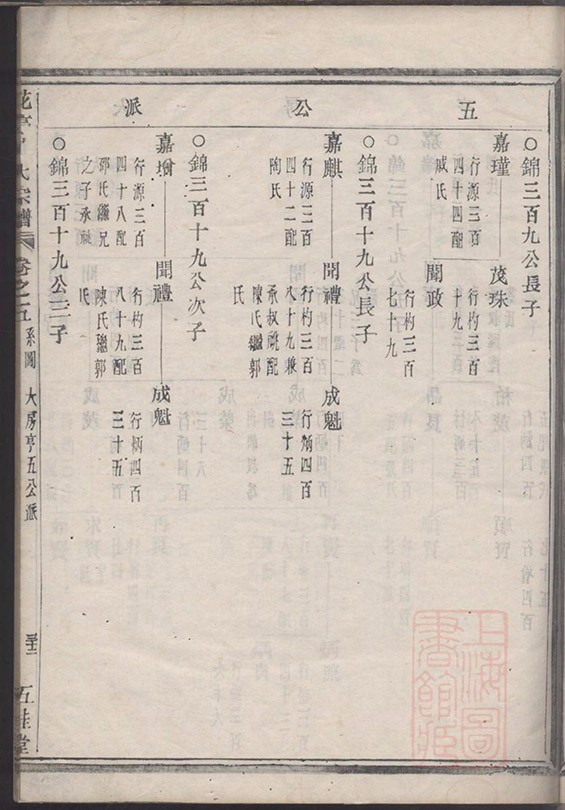 五公派
○錦三百九公長子
嘉瑾
行源三百
四十四配
臧氏
茂珠
行杓三百
十九
聞政
行杓三百
七十九
○錦三百十九公長子
嘉麒
行源三百
四十二配
陶氏
聞禮
行杓三百
八十九兼
承叔祧配
陳氏繼郭
氏
成魁
行炳四百
三十五
○錦三百十九公次子
嘉增
行源三百
四十八配
邵氏繼兄
之子承祧
聞禮
行杓三百
八十九配
陳氏繼郭
氏
成魁
行炳四百
三十五
○錦三百十九公三子
氏宗譜
卷之五
系圖
大房亨五公派
五桂堂
上海圖
書館藏